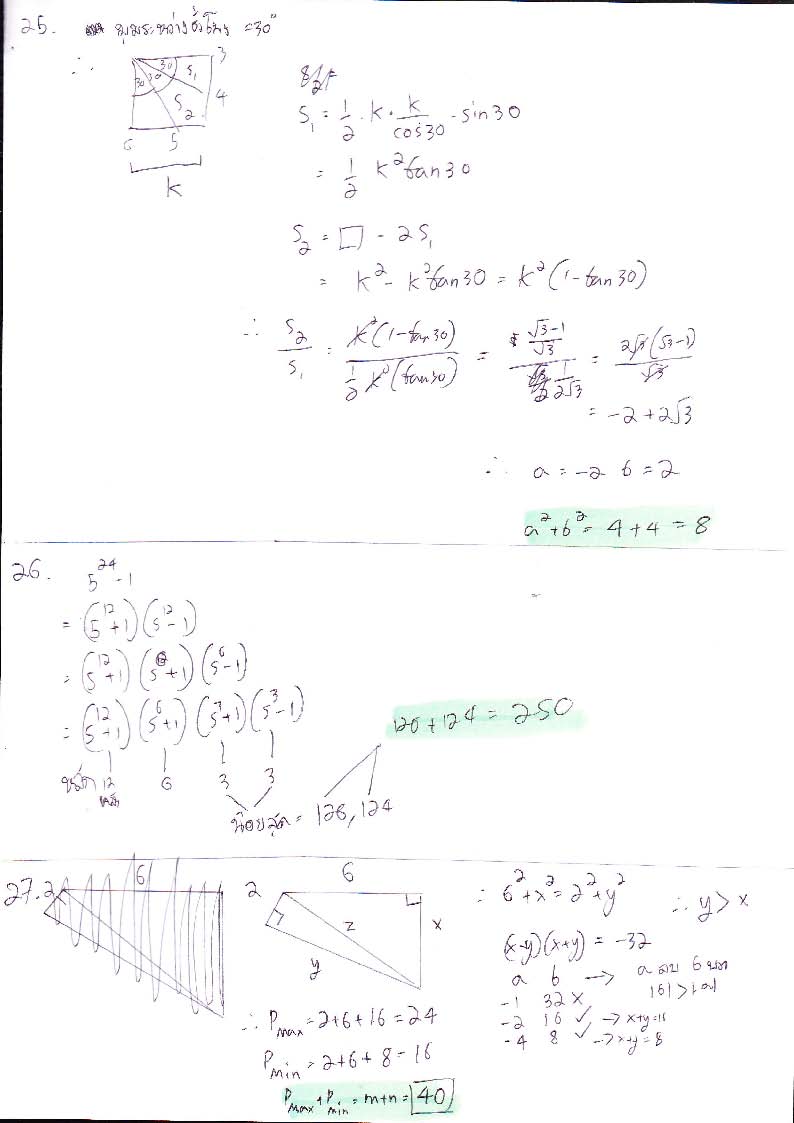 25. มุมระหว่างชั่วโมง = 30°
∴
30 3
30 30 S₁
S₂ 4
6 5
k
S₁ = 1/2 · k · k/cos30 · sin30
= 1/2 k² tan30
S₂ = □ - 2S₁
= k² - k² tan30 = k²(1 - tan30)
∴ S₂/S₁ = k²(1-tan30) / 1/2 k²(tan30) = (√3-1)/√3 / 1/2√3 = 2√3(√3-1)/√3
= -2 + 2√3
∴ a = -2 b = 2
a² + b² = 4 + 4 = 8
26. 5²⁴ - 1
= (5¹² + 1)(5¹² - 1)
= (5¹² + 1)(5⁶ + 1)(5⁶ - 1)
= (5¹² + 1)(5⁶ + 1)(5³ + 1)(5³ - 1)
126 + 124 = 250
12 6 3 3
หลัก
น้อยสุด = 126, 124
27. 2 6
2 6
z x
y
∴ 6² + x² = 2² + y² ∴ y > x
(x-y)(x+y) = -32
a b → a ลบ b บวก
|b| > |a|
-1 32 ×
-2 16 ✓ → x+y=16
-4 8 ✓ → x+y=8
∴ Pmax = 2+6+16 = 24
Pmin = 2+6+8 = 16
Pmax + Pmin = m+n = 40